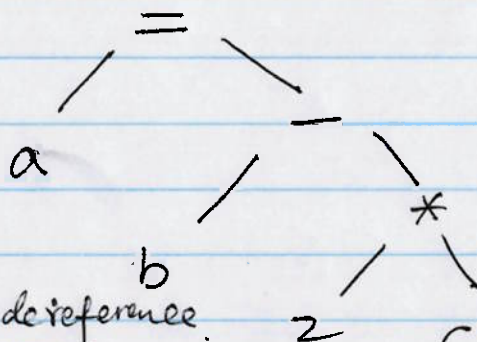 =
a -
b *
dereference
2 c